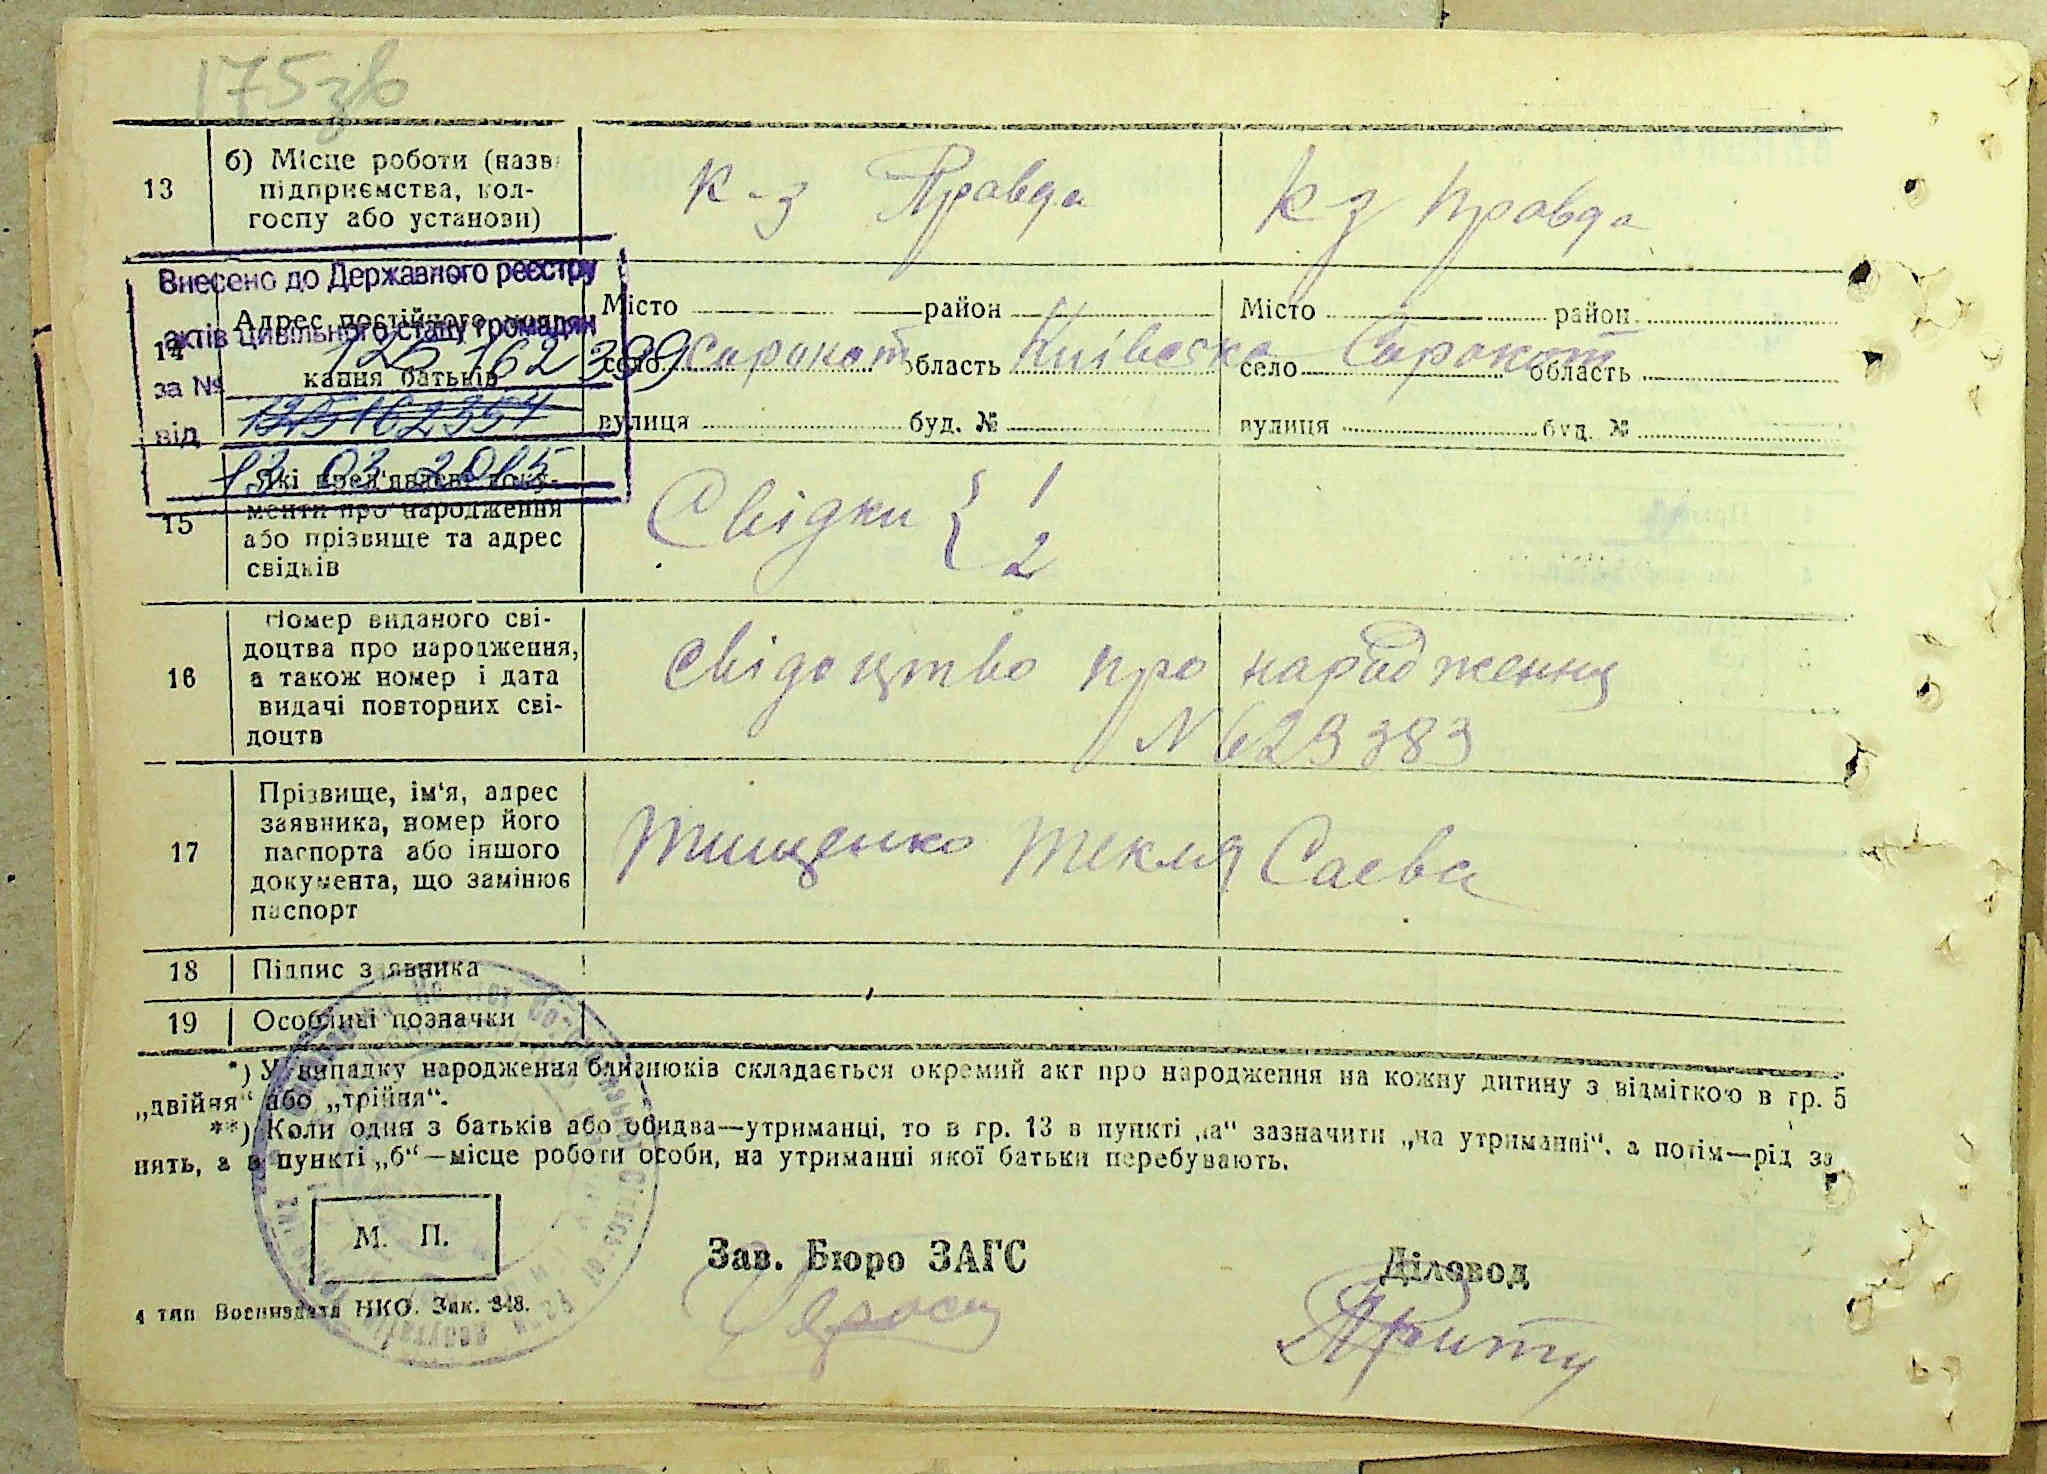 175зв
13
б) Місце роботи (назв
підприємства, кол-
госпу або установи)
к-з Правда
к з правда
Внесено до Державного реєстру
актів цивільного стану громадян
за №
126 162 399
125162354
від
13 03 2015
14
Адрес постійного
кання батьків
Місто район
село область Київська
вулиця буд. №
Місто район
село область
вулиця буд. №
15
Які пред'явлені доку-
менти про народження
або прізвище та адрес
свідків
Свідки { 1
2
16
Номер виданого сві-
доцтва про народження,
а також номер і дата
видачі повторних сві-
доцтв
Свідоцтво про народження
N 629383
17
Прізвище, ім'я, адрес
заявника, номер його
паспорта або іншого
документа, що замінює
паспорт
Тищенко Текля Саєва
18
Підпис заявника
19
Особливі позначки
*) У випадку народження близнюків складається окремий акт про народження на кожну дитину з відміткою в гр. 5
„двійня“ або „трійня“.
**) Коли один з батьків або обидва—утриманці, то в гр. 13 в пункті „а“ зазначити „на утриманні“, а потім—рід за
нять, а в пункті „б“—місце роботи особи, на утриманні якої батьки перебувають.
М. П.
Зав. Бюро ЗАГС
Діловод
4 тип Воениздата НКО. Зак. 348.